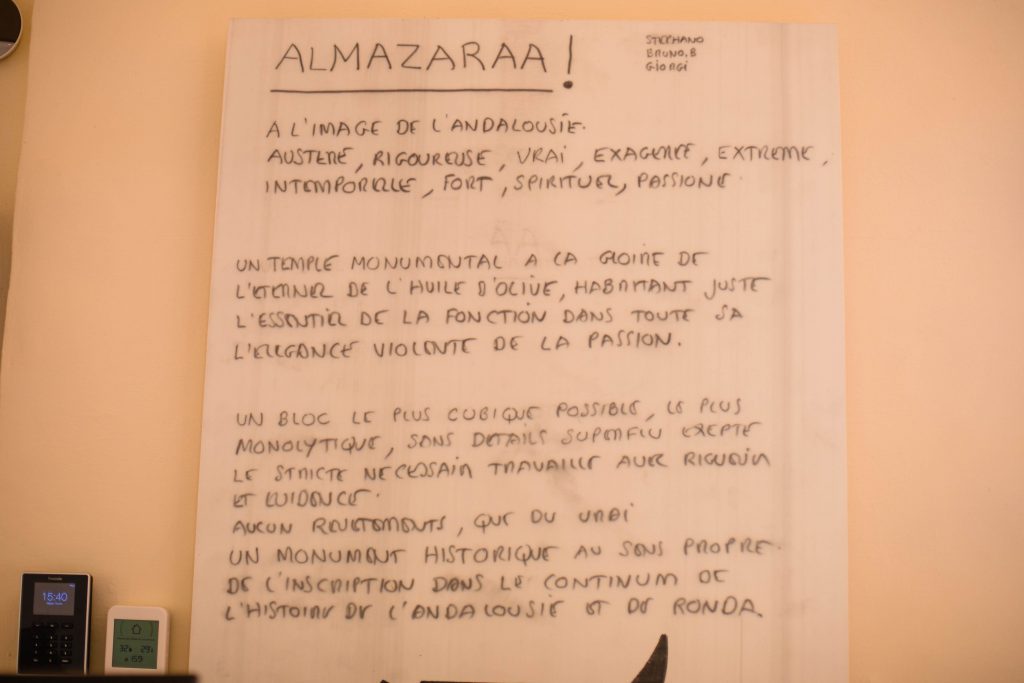 ALMAZARAA !
STEPHANO
BRUNO.B
GIORGI
A L'IMAGE DE L'ANDALOUSIE.
AUSTERE, RIGOUREUSE, VRAI, EXAGERÉE, EXTREME,
INTEMPORELLE, FORT, SPIRITUEL, PASSIONE.
UN TEMPLE MONUMENTAL A LA GLOIRE DE
L'ETERNEL DE L'HUILE D'OLIVE, HABRITANT JUSTE
L'ESSENTIEL DE LA FONCTION DANS TOUTE SA
L'ELEGANCE VIOLENTE DE LA PASSION.
UN BLOC LE PLUS CUBIQUE POSSIBLE, LE PLUS
MONOLYTIQUE, SANS DETAILS SUPERFLU EXEPTE
LE STRICTE NECESSAIR TRAVAILLE AVEC RIGUEUR
ET EVIDENCE.
AUCUN REVETEMENTS, QUE DU VRAI
UN MONUMENT HISTORIQUE AU SENS PROPRE.
DE L'INSCRIPTION DANS LE CONTINUM DE
L'HISTOIRE DE L'ANDALOUSIE ET DE RONDA.
15:40